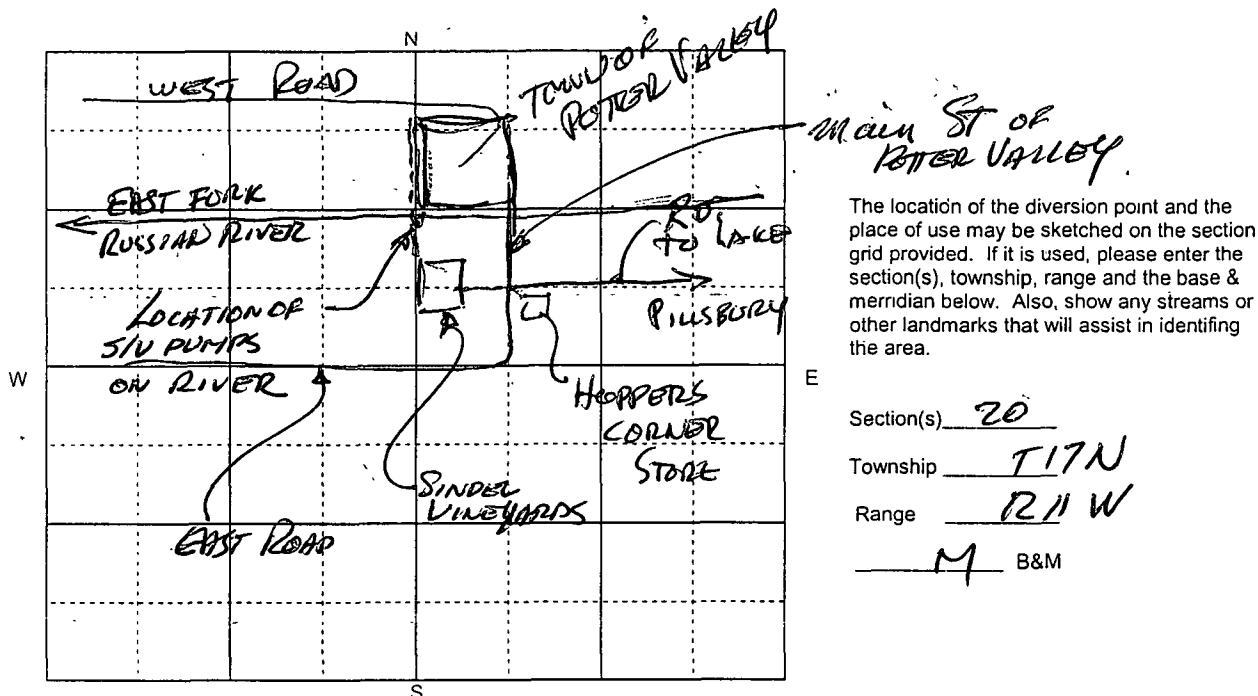 N
WEST ROAD
TOWN OF
POTTER VALLEY
Main ST OF
POTTER VALLEY
EAST FORK
RUSSIAN RIVER
RD
TO LAKE
PILLSBURY
LOCATION OF
S/V PUMPS
ON RIVER
W
E
HOPPERS
CORNER
STORE
SINDEL
VINEYARDS
EAST ROAD
S
The location of the diversion point and the
place of use may be sketched on the section
grid provided. If it is used, please enter the
section(s), township, range and the base &
merridian below. Also, show any streams or
other landmarks that will assist in identifing
the area.
Section(s) 20
Township T17N
Range R11W
M B&M